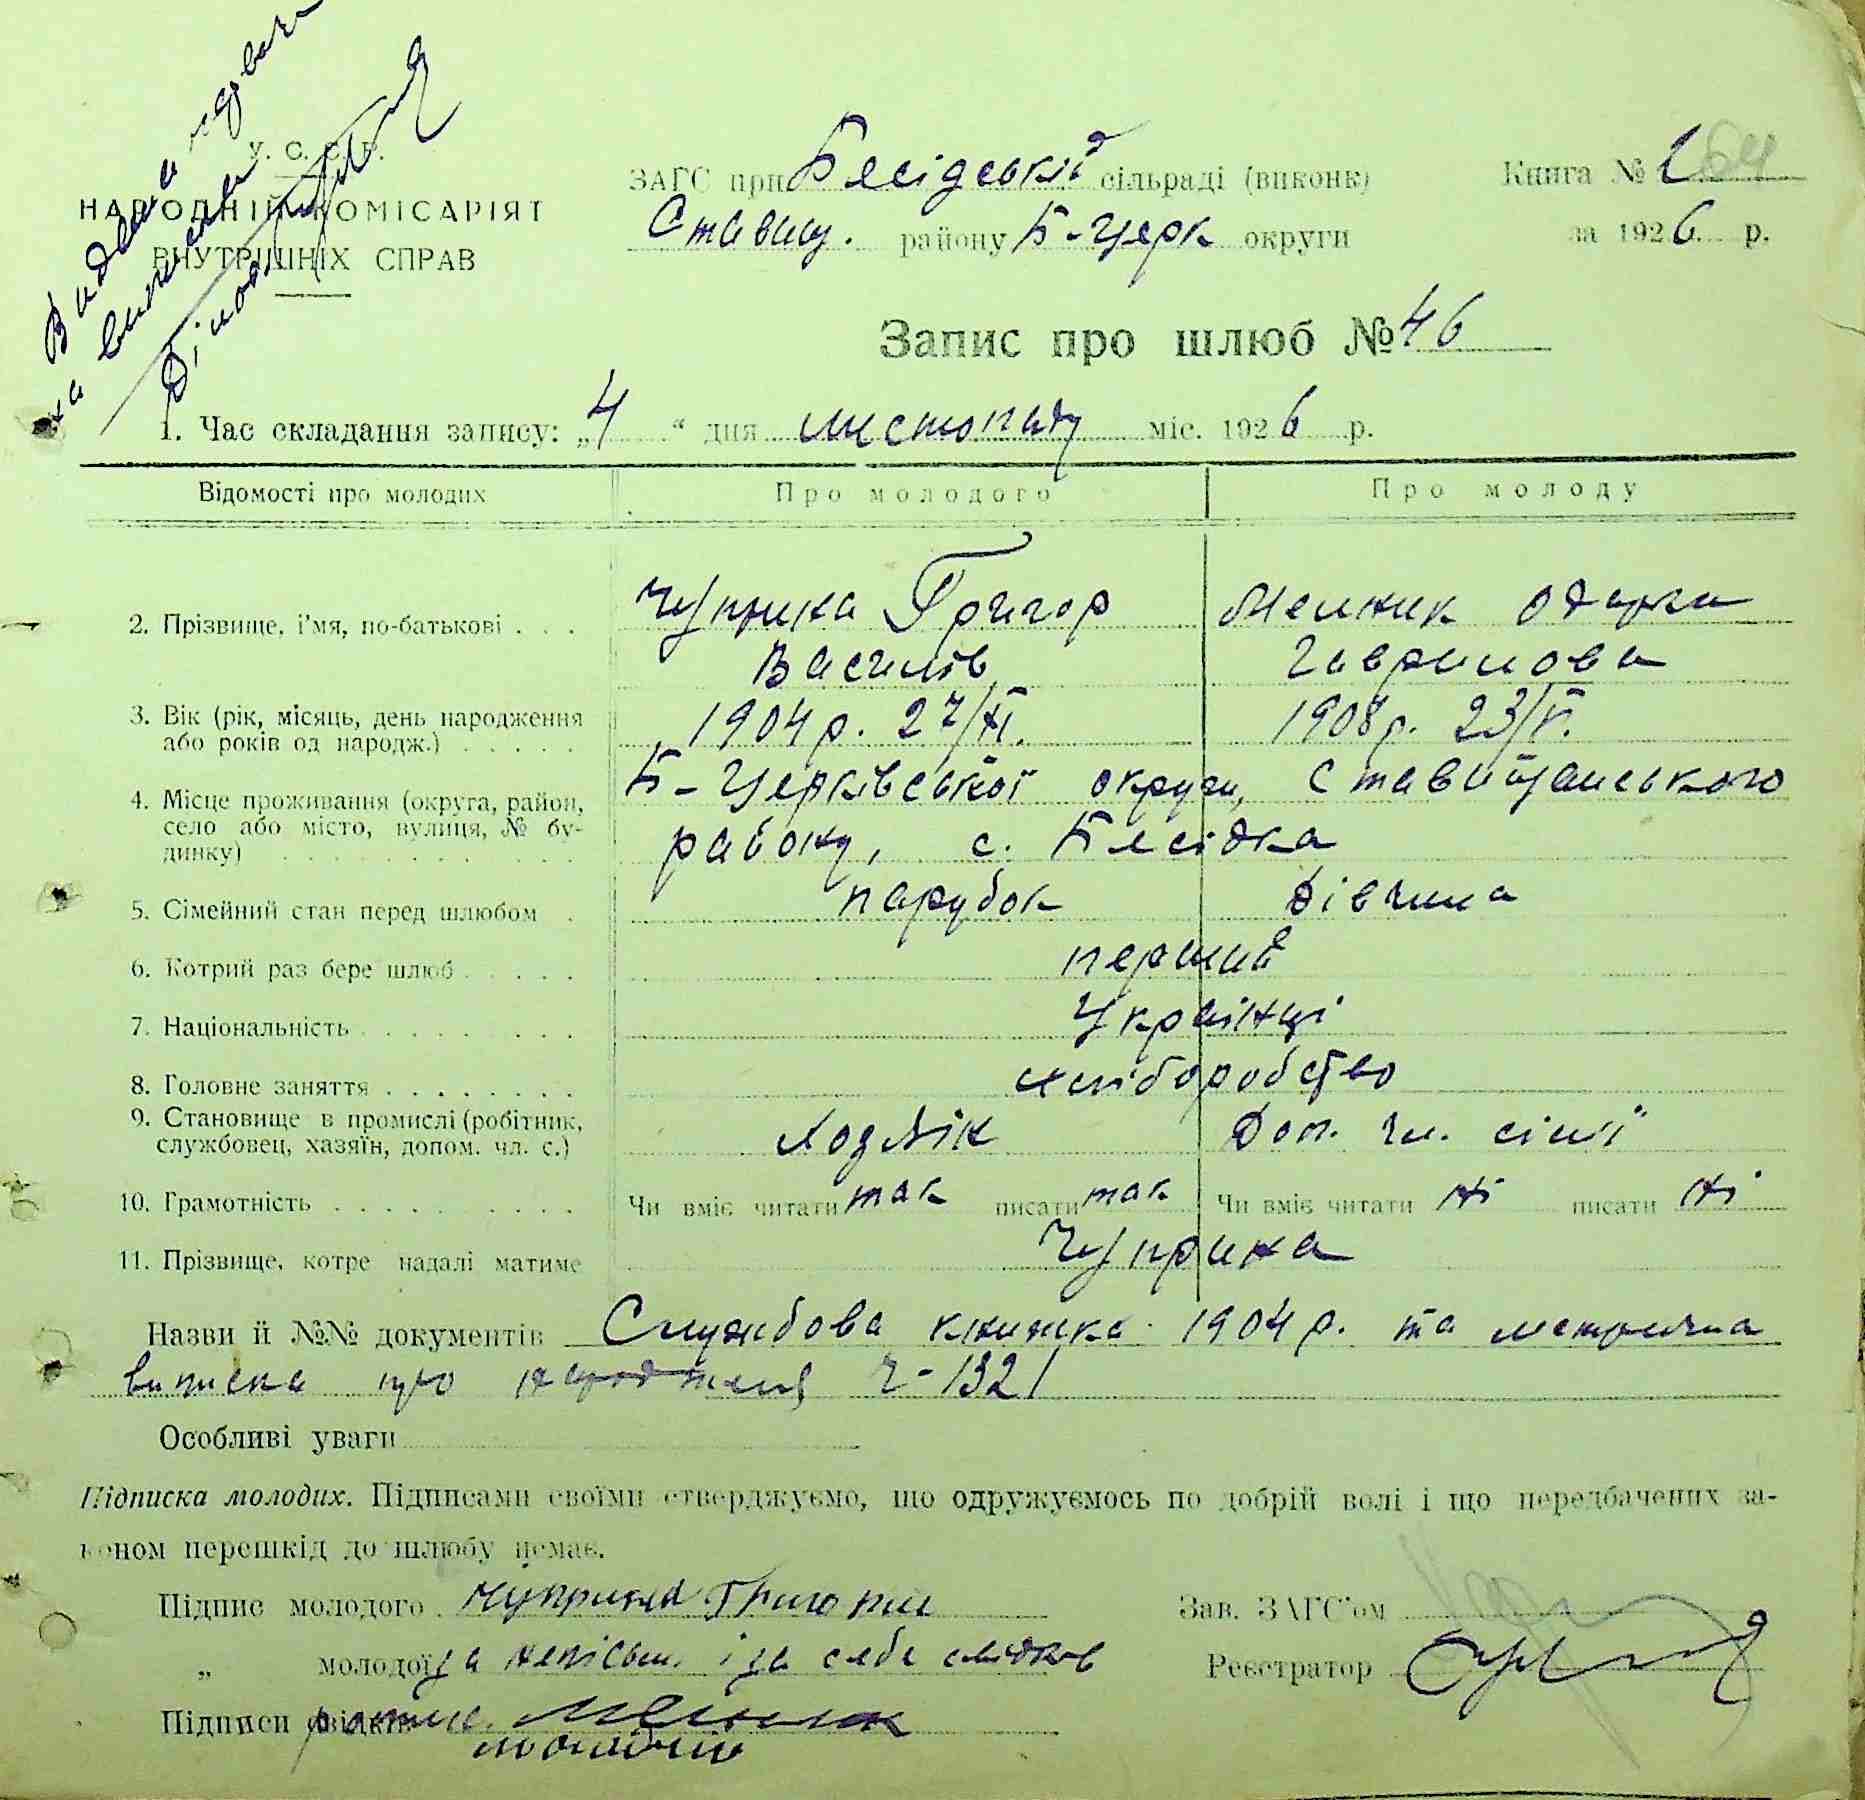 Видана
на виписка
У. С. С. Р.
НАРОДНІЙ КОМІСАРІЯТ
ВНУТРІШНІХ СПРАВ
ЗАГС при Бесідській сільраді (виконк)
Ставищ. району Б-Церк округи
Книга № 1 64
за 1926 р.
Запис про шлюб № 46
1. Час складання запису: „4" дня листопаду міс. 1926 р.
Відомості про молодих Про молодого Про молоду
2. Прізвище, і'мя, по-батькові . . . Чуприна Григор Мельник Одарка
Василів Гаврилова
3. Вік (рік, місяць, день народження 1904 р. 27/XI. 1908 р. 23/V.
або років од народж.) . . . . .
4. Місце проживання (округа, район, Б-Церківської округи, Ставищанського
село або місто, вулиця, № бу-
динку) району, с. Бесідка
5. Сімейний стан перед шлюбом . парубок дівчина
6. Котрий раз бере шлюб . . . . . перший
7. Національність . . . . . . . Українці
8. Головне заняття . . . . . . . . хліборобство
9. Становище в промислі (робітник, Ходяїк Доп. чл. сімї
службовец, хазяїн, допом. чл. с.)
10. Грамотність . . . . . . . . Чи вміє читати так писати так Чи вміє читати ні писати ні
11. Прізвище, котре надалі матиме Чуприна
Назви й №№ документів Службова книжка 1904 р. та метрична
виписка про народженя ч-1321
Особливі уваги
Підписка молодих. Підписами своїми стверджуємо, що одружуємось по добрій волі і що передбачених за-
коном перешкід до шлюбу немає.
Підпис молодого Чуприна Григорий
„ молодої за неписьм. і за себе свідків
Підписи свідків розпис. Мельник
Зав. ЗАГС'ом
Реєстратор